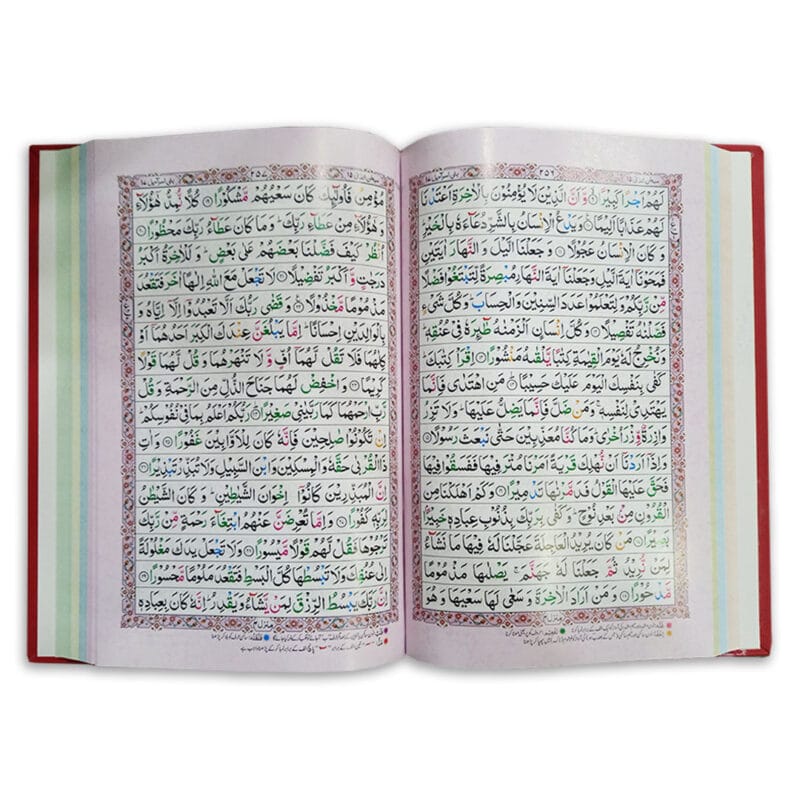 بنی اسرآءیل ١٧
لَهُمْ اَجْرًا كَبِيْرًا ۙ وَّ اَنَّ الَّذِيْنَ لَا يُؤْمِنُوْنَ بِالْاٰخِرَةِ اَعْتَدْنَا
لَهُمْ عَذَابًا اَلِيْمًا ۧ وَيَدْعُ الْاِنْسَانُ بِالشَّرِّ دُعَآءَهٗ بِالْخَيْرِ ؕ
وَ كَانَ الْاِنْسَانُ عَجُوْلًا وَ جَعَلْنَا الَّيْلَ وَ النَّهَارَ اٰيَتَيْنِ
فَمَحَوْنَاۤ اٰيَةَ الَّيْلِ وَجَعَلْنَاۤ اٰيَةَ النَّهَارِ مُبْصِرَةً لِّتَبْتَغُوْا فَضْلًا
مِّنْ رَّبِّكُمْ وَ لِتَعْلَمُوْا عَدَدَ السِّنِيْنَ وَ الْحِسَابَ ؕ وَ كُلَّ شَيْءٍ
فَصَّلْنٰهُ تَفْصِيْلًا وَ كُلَّ اِنْسَانٍ اَلْزَمْنٰهُ طٰٓئِرَهٗ فِيْ عُنُقِهٖ ؕ
وَ نُخْرِجُ لَهٗ يَوْمَ الْقِيٰمَةِ كِتٰبًا يَّلْقٰىهُ مَنْشُوْرًا اِقْرَاْ كِتٰبَكَ ؕ
كَفٰى بِنَفْسِكَ الْيَوْمَ عَلَيْكَ حَسِيْبًا ؕ مَنِ اهْتَدٰى فَاِنَّمَا
يَهْتَدِيْ لِنَفْسِهٖ ۚ وَ مَنْ ضَلَّ فَاِنَّمَا يَضِلُّ عَلَيْهَا ؕ وَ لَا تَزِرُ
وَازِرَةٌ وِّزْرَ اُخْرٰى ؕ وَ مَا كُنَّا مُعَذِّبِيْنَ حَتّٰى نَبْعَثَ رَسُوْلًا
وَ اِذَاۤ اَرَدْنَاۤ اَنْ نُّهْلِكَ قَرْيَةً اَمَرْنَا مُتْرَفِيْهَا فَفَسَقُوْا فِيْهَا
فَحَقَّ عَلَيْهَا الْقَوْلُ فَدَمَّرْنٰهَا تَدْمِيْرًا وَ كَمْ اَهْلَكْنَا مِنَ
الْقُرُوْنِ مِنْۢ بَعْدِ نُوْحٍ ؕ وَ كَفٰى بِرَبِّكَ بِذُنُوْبِ عِبَادِهٖ خَبِيْرًۢا
بَصِيْرًا مَنْ كَانَ يُرِيْدُ الْعَاجِلَةَ عَجَّلْنَا لَهٗ فِيْهَا مَا نَشَآءُ
لِمَنْ نُّرِيْدُ ثُمَّ جَعَلْنَا لَهٗ جَهَنَّمَ ۚ يَصْلٰىهَا مَذْمُوْمًا
مَّدْحُوْرًا وَ مَنْ اَرَادَ الْاٰخِرَةَ وَ سَعٰى لَهَا سَعْيَهَا وَ هُوَ
بنی اسرآءیل ١٧
مُؤْمِنٌ فَاُولٰٓئِكَ كَانَ سَعْيُهُمْ مَّشْكُوْرًا كُلًّا نُّمِدُّ هٰۤؤُلَآءِ
وَ هٰۤؤُلَآءِ مِنْ عَطَآءِ رَبِّكَ ؕ وَ مَا كَانَ عَطَآءُ رَبِّكَ مَحْظُوْرًا
اُنْظُرْ كَيْفَ فَضَّلْنَا بَعْضَهُمْ عَلٰى بَعْضٍ ؕ وَ لَلْاٰخِرَةُ اَكْبَرُ
دَرَجٰتٍ وَّ اَكْبَرُ تَفْضِيْلًا لَا تَجْعَلْ مَعَ اللّٰهِ اِلٰهًا اٰخَرَ فَتَقْعُدَ
مَذْمُوْمًا مَّخْذُوْلًا وَ قَضٰى رَبُّكَ اَلَّا تَعْبُدُوْۤا اِلَّاۤ اِيَّاهُ وَ
بِالْوَالِدَيْنِ اِحْسَانًا ؕ اِمَّا يَبْلُغَنَّ عِنْدَكَ الْكِبَرَ اَحَدُهُمَاۤ اَوْ
كِلٰهُمَا فَلَا تَقُلْ لَّهُمَاۤ اُفٍّ وَّ لَا تَنْهَرْهُمَا وَ قُلْ لَّهُمَا قَوْلًا
كَرِيْمًا وَ اخْفِضْ لَهُمَا جَنَاحَ الذُّلِّ مِنَ الرَّحْمَةِ وَ قُلْ
رَّبِّ ارْحَمْهُمَا كَمَا رَبَّيٰنِيْ صَغِيْرًا ؕ رَبُّكُمْ اَعْلَمُ بِمَا فِيْ نُفُوْسِكُمْ ؕ
اِنْ تَكُوْنُوْا صٰلِحِيْنَ فَاِنَّهٗ كَانَ لِلْاَوَّابِيْنَ غَفُوْرًا وَ اٰتِ
ذَا الْقُرْبٰى حَقَّهٗ وَ الْمِسْكِيْنَ وَ ابْنَ السَّبِيْلِ وَ لَا تُبَذِّرْ تَبْذِيْرًا
اِنَّ الْمُبَذِّرِيْنَ كَانُوْۤا اِخْوَانَ الشَّيٰطِيْنِ ؕ وَ كَانَ الشَّيْطٰنُ
لِرَبِّهٖ كَفُوْرًا وَ اِمَّا تُعْرِضَنَّ عَنْهُمُ ابْتِغَآءَ رَحْمَةٍ مِّنْ رَّبِّكَ
تَرْجُوْهَا فَقُلْ لَّهُمْ قَوْلًا مَّيْسُوْرًا وَ لَا تَجْعَلْ يَدَكَ مَغْلُوْلَةً
اِلٰى عُنُقِكَ وَ لَا تَبْسُطْهَا كُلَّ الْبَسْطِ فَتَقْعُدَ مَلُوْمًا مَّحْسُوْرًا
اِنَّ رَبَّكَ يَبْسُطُ الرِّزْقَ لِمَنْ يَّشَآءُ وَ يَقْدِرُ ؕ اِنَّهٗ كَانَ بِعِبَادِهٖ